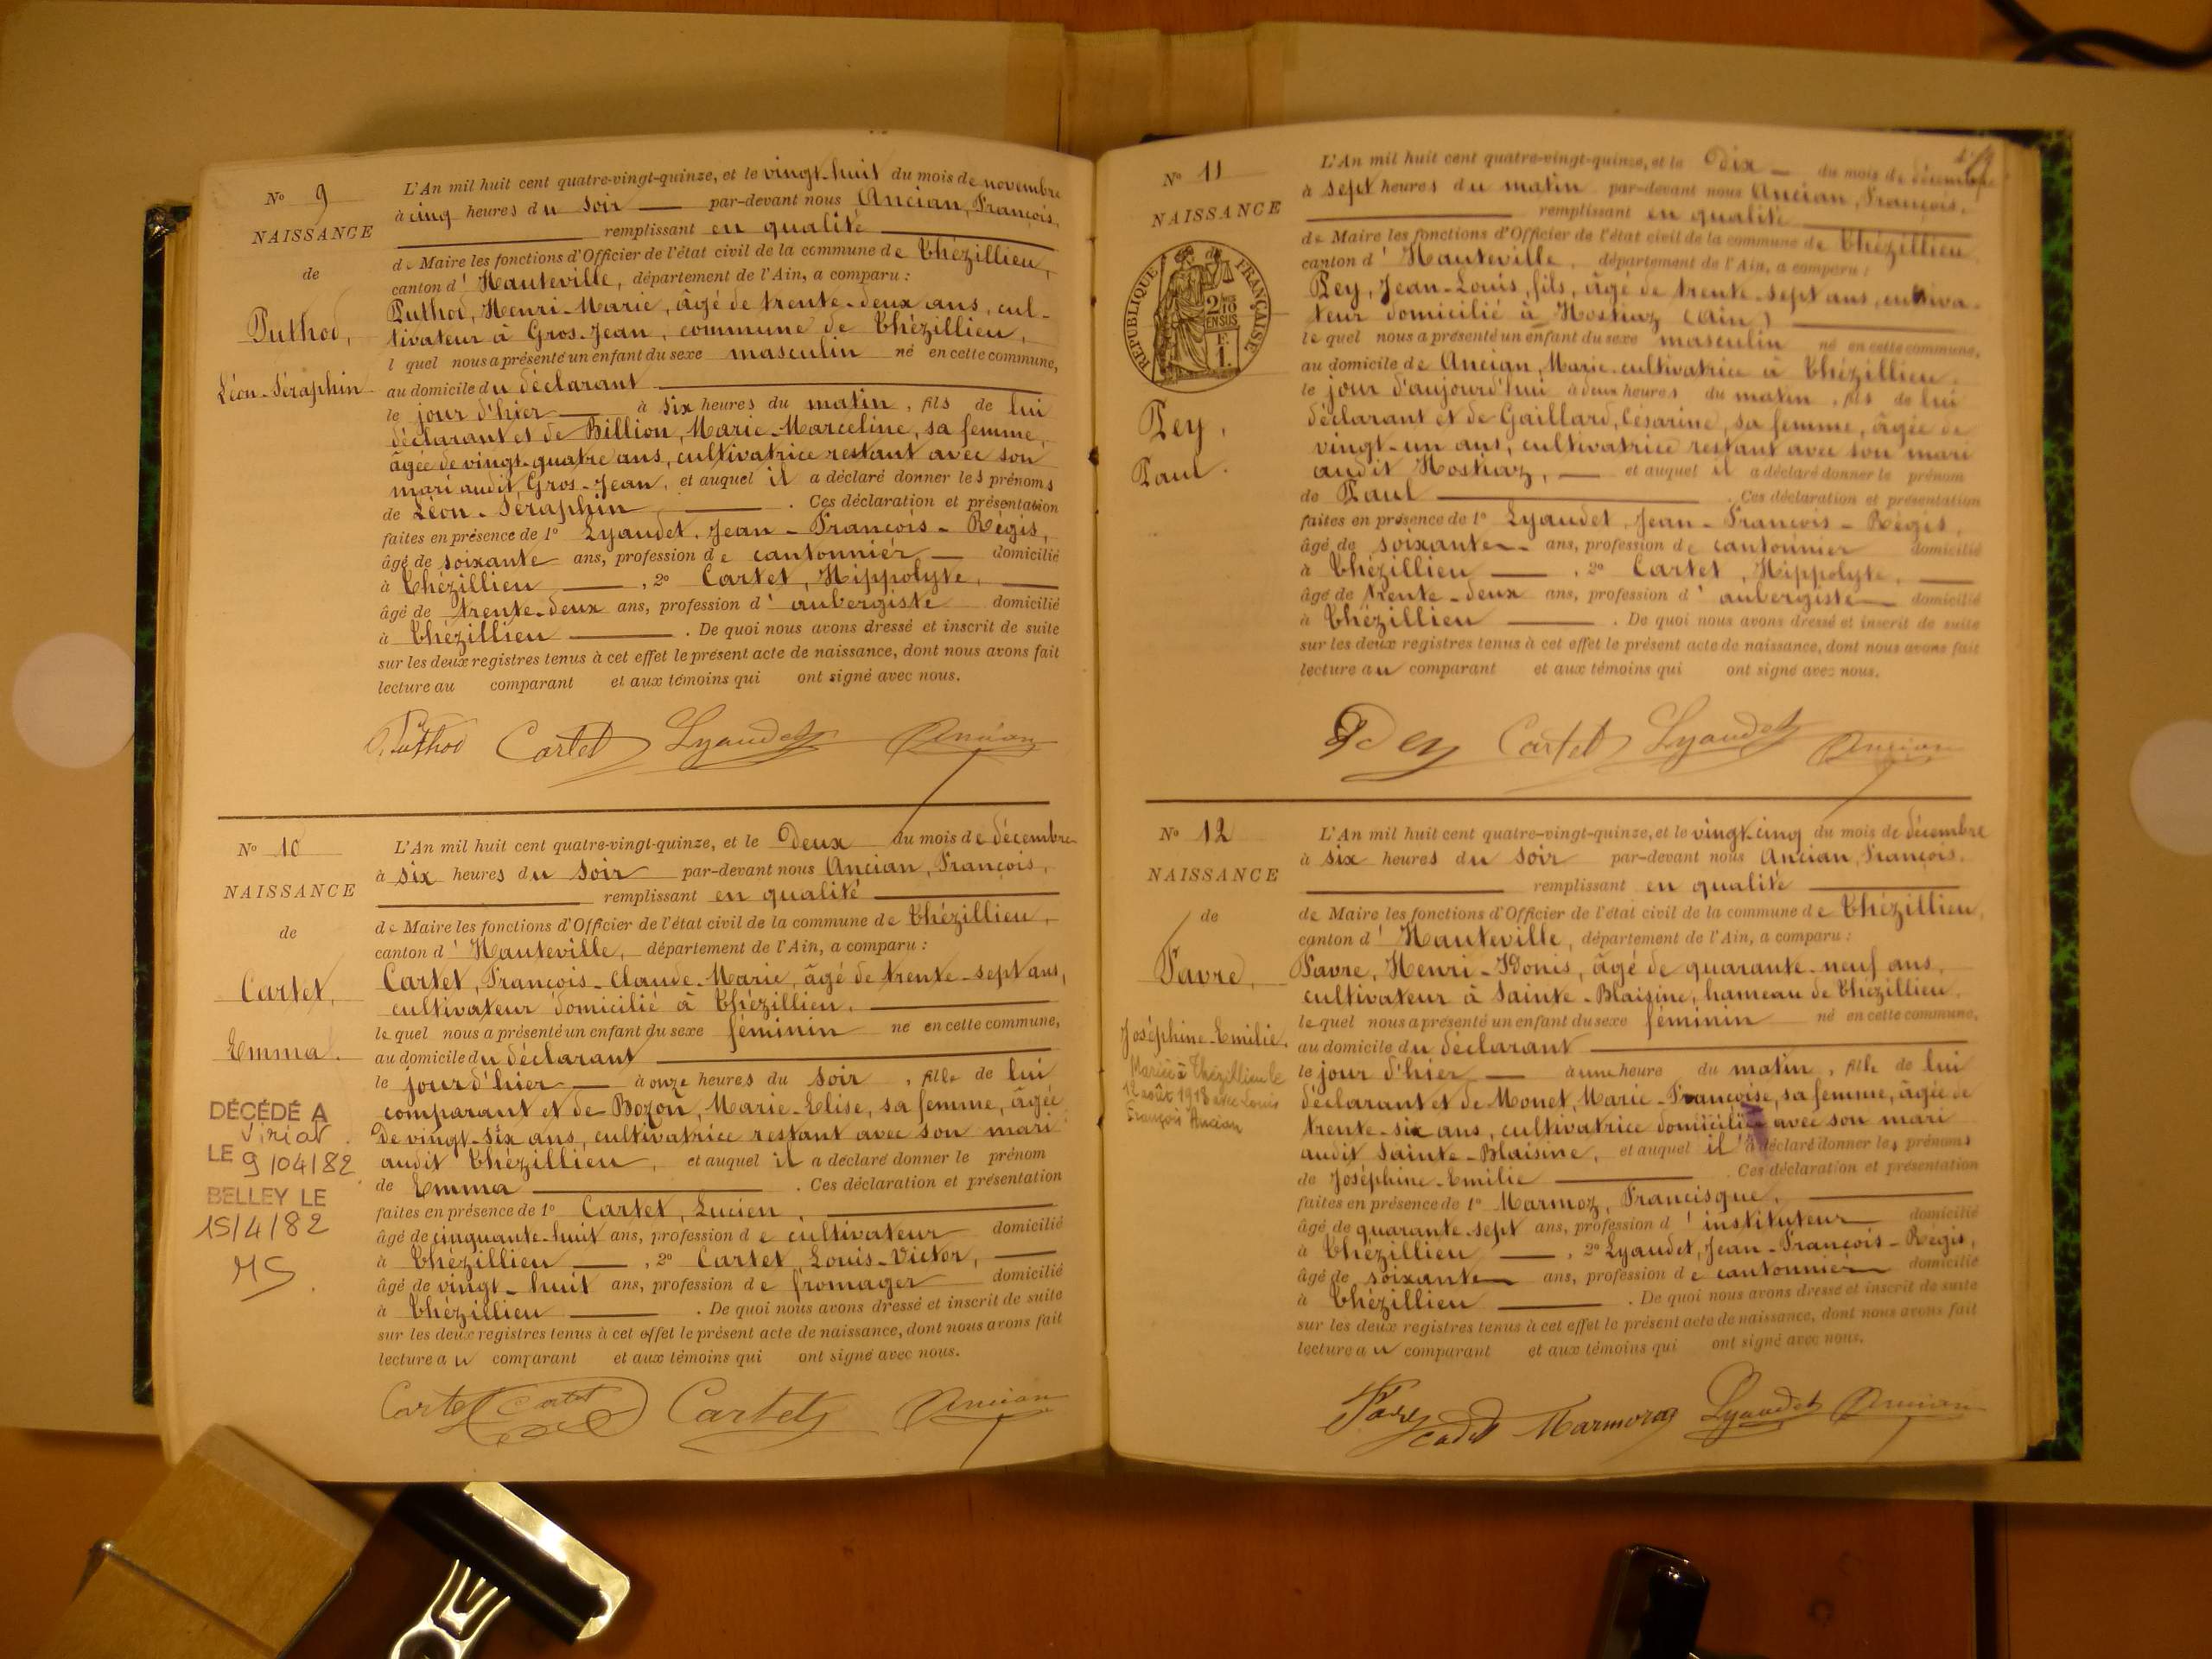 N° 9
NAISSANCE
de
Puthod,
Léon-Séraphin
L'An mil huit cent quatre-vingt-quinze, et le vingt-huit du mois de novembre
à cinq heures du soir — par-devant nous Ancian, François,
remplissant en qualité
de Maire les fonctions d'Officier de l'état civil de la commune de Thézillieu,
canton d' Hauteville, département de l'Ain, a comparu :
Puthod, Henri-Marie, âgé de trente-deux ans, cul-
tivateur à Gros-Jean, commune de Thézillieu,
l quel nous a présenté un enfant du sexe masculin né en cette commune,
au domicile du déclarant
le jour d'hier — à six heures du matin, fils de lui
déclarant et de Billion, Marie-Marceline, sa femme,
âgée de vingt-quatre ans, cultivatrice restant avec son
mari audit Gros-Jean, et auquel il a déclaré donner les prénoms
de Léon-Séraphin — . Ces déclaration et présentation
faites en présence de 1° Lyaudet, Jean-François-Régis,
âgé de soixante ans, profession de cantonnier — domicilié
à Thézillieu — , 2° Cartet, Hippolyte,
âgé de trente-deux ans, profession d' aubergiste domicilié
à Thézillieu — . De quoi nous avons dressé et inscrit de suite
sur les deux registres tenus à cet effet le présent acte de naissance, dont nous avons fait
lecture au comparant et aux témoins qui ont signé avec nous.
Puthod Cartet Lyaudet Ancian
N° 10
NAISSANCE
de
Cartet,
Emma.
DÉCÉDÉ A
Viriat
LE 9/04/82
BELLEY LE
15/4/82
MS
L'An mil huit cent quatre-vingt-quinze, et le Deux du mois de décembre
à six heures du soir par-devant nous Ancian, François,
remplissant en qualité
de Maire les fonctions d'Officier de l'état civil de la commune de Thézillieu,
canton d' Hauteville, département de l'Ain, a comparu :
Cartet, François-Claude-Marie, âgé de trente-sept ans,
cultivateur domicilié à Thézillieu,
lequel nous a présenté un enfant du sexe féminin né en cette commune,
au domicile du déclarant
le jour d'hier — à onze heures du soir, fille de lui
comparant et de Bozon, Marie-Elise, sa femme, âgée
de vingt-six ans, cultivatrice restant avec son mari
audit Thézillieu, et auquel il a déclaré donner le prénom
de Emma — . Ces déclaration et présentation
faites en présence de 1° Cartet, Lucien,
âgé de cinquante-huit ans, profession de cultivateur domicilié
à Thézillieu — , 2° Cartet, Louis-Victor,
âgé de vingt-huit ans, profession de fromager domicilié
à Thézillieu — . De quoi nous avons dressé et inscrit de suite
sur les deux registres tenus à cet effet le présent acte de naissance, dont nous avons fait
lecture au comparant et aux témoins qui ont signé avec nous.
Cartet Cartet Cartet Ancian
N° 11
NAISSANCE
RÉPUBLIQUE FRANÇAISE
2/10
EN SUS
Pey,
Paul.
L'An mil huit cent quatre-vingt-quinze, et le Dix — du mois de décembre
à sept heures du matin par-devant nous Ancian, François,
remplissant en qualité
de Maire les fonctions d'Officier de l'état civil de la commune de Thézillieu
canton d' Hauteville, département de l'Ain, a comparu :
Pey, Jean-Louis, fils, âgé de trente-sept ans, cultiva-
teur domicilié à Hostiaz (Ain)
lequel nous a présenté un enfant du sexe masculin né en cette commune,
au domicile de Ancian, Marie cultivatrice à Thézillieu,
le jour d'aujourd'hui à deux heures du matin, fils de lui
déclarant et de Gaillard, Césarine, sa femme, âgée de
vingt-un ans, cultivatrice restant avec son mari
audit Hostiaz, — et auquel il a déclaré donner le prénom
de Paul — . Ces déclaration et présentation
faites en présence de 1° Lyaudet, Jean-François-Régis,
âgé de soixante ans, profession de cantonnier domicilié
à Thézillieu — , 2° Cartet, Hippolyte,
âgé de trente-deux ans, profession d' aubergiste domicilié
à Thézillieu — . De quoi nous avons dressé et inscrit de suite
sur les deux registres tenus à cet effet le présent acte de naissance, dont nous avons fait
lecture au comparant et aux témoins qui ont signé avec nous.
Pey Cartet Lyaudet Ancian
N° 12
NAISSANCE
de
Favre,
Joséphine-Emilie.
Mariée à Thézillieu le
12 août 1913 avec Louis
François Ancian
L'An mil huit cent quatre-vingt-quinze, et le vingt-cinq du mois de décembre
à six heures du soir par-devant nous Ancian, François,
remplissant en qualité
de Maire les fonctions d'Officier de l'état civil de la commune de Thézillieu,
canton d' Hauteville, département de l'Ain, a comparu :
Favre, Henri-Adonis, âgé de quarante-neuf ans,
cultivateur à Sainte-Blaisine, hameau de Thézillieu,
lequel nous a présenté un enfant du sexe féminin né en cette commune,
au domicile du déclarant
le jour d'hier — à une heure du matin, fille de lui
déclarant et de Monet, Marie-Françoise, sa femme, âgée de
trente-six ans, cultivatrice domiciliée avec son mari
audit Sainte-Blaisine, et auquel il a déclaré donner les prénoms
de Joséphine-Emilie — . Ces déclaration et présentation
faites en présence de 1° Marmoz, Francisque,
âgé de quarante-sept ans, profession d' instituteur domicilié
à Thézillieu — , 2° Lyaudet, Jean-François-Régis,
âgé de soixante ans, profession de cantonnier domicilié
à Thézillieu — . De quoi nous avons dressé et inscrit de suite
sur les deux registres tenus à cet effet le présent acte de naissance, dont nous avons fait
lecture au comparant et aux témoins qui ont signé avec nous.
Favre cadet Marmoz Lyaudet Ancian